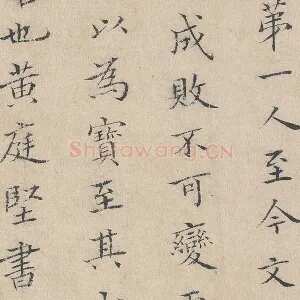 苐一人至今文
成敗不可變
以為寶至其
也黃庭堅書
Shufawang.CN